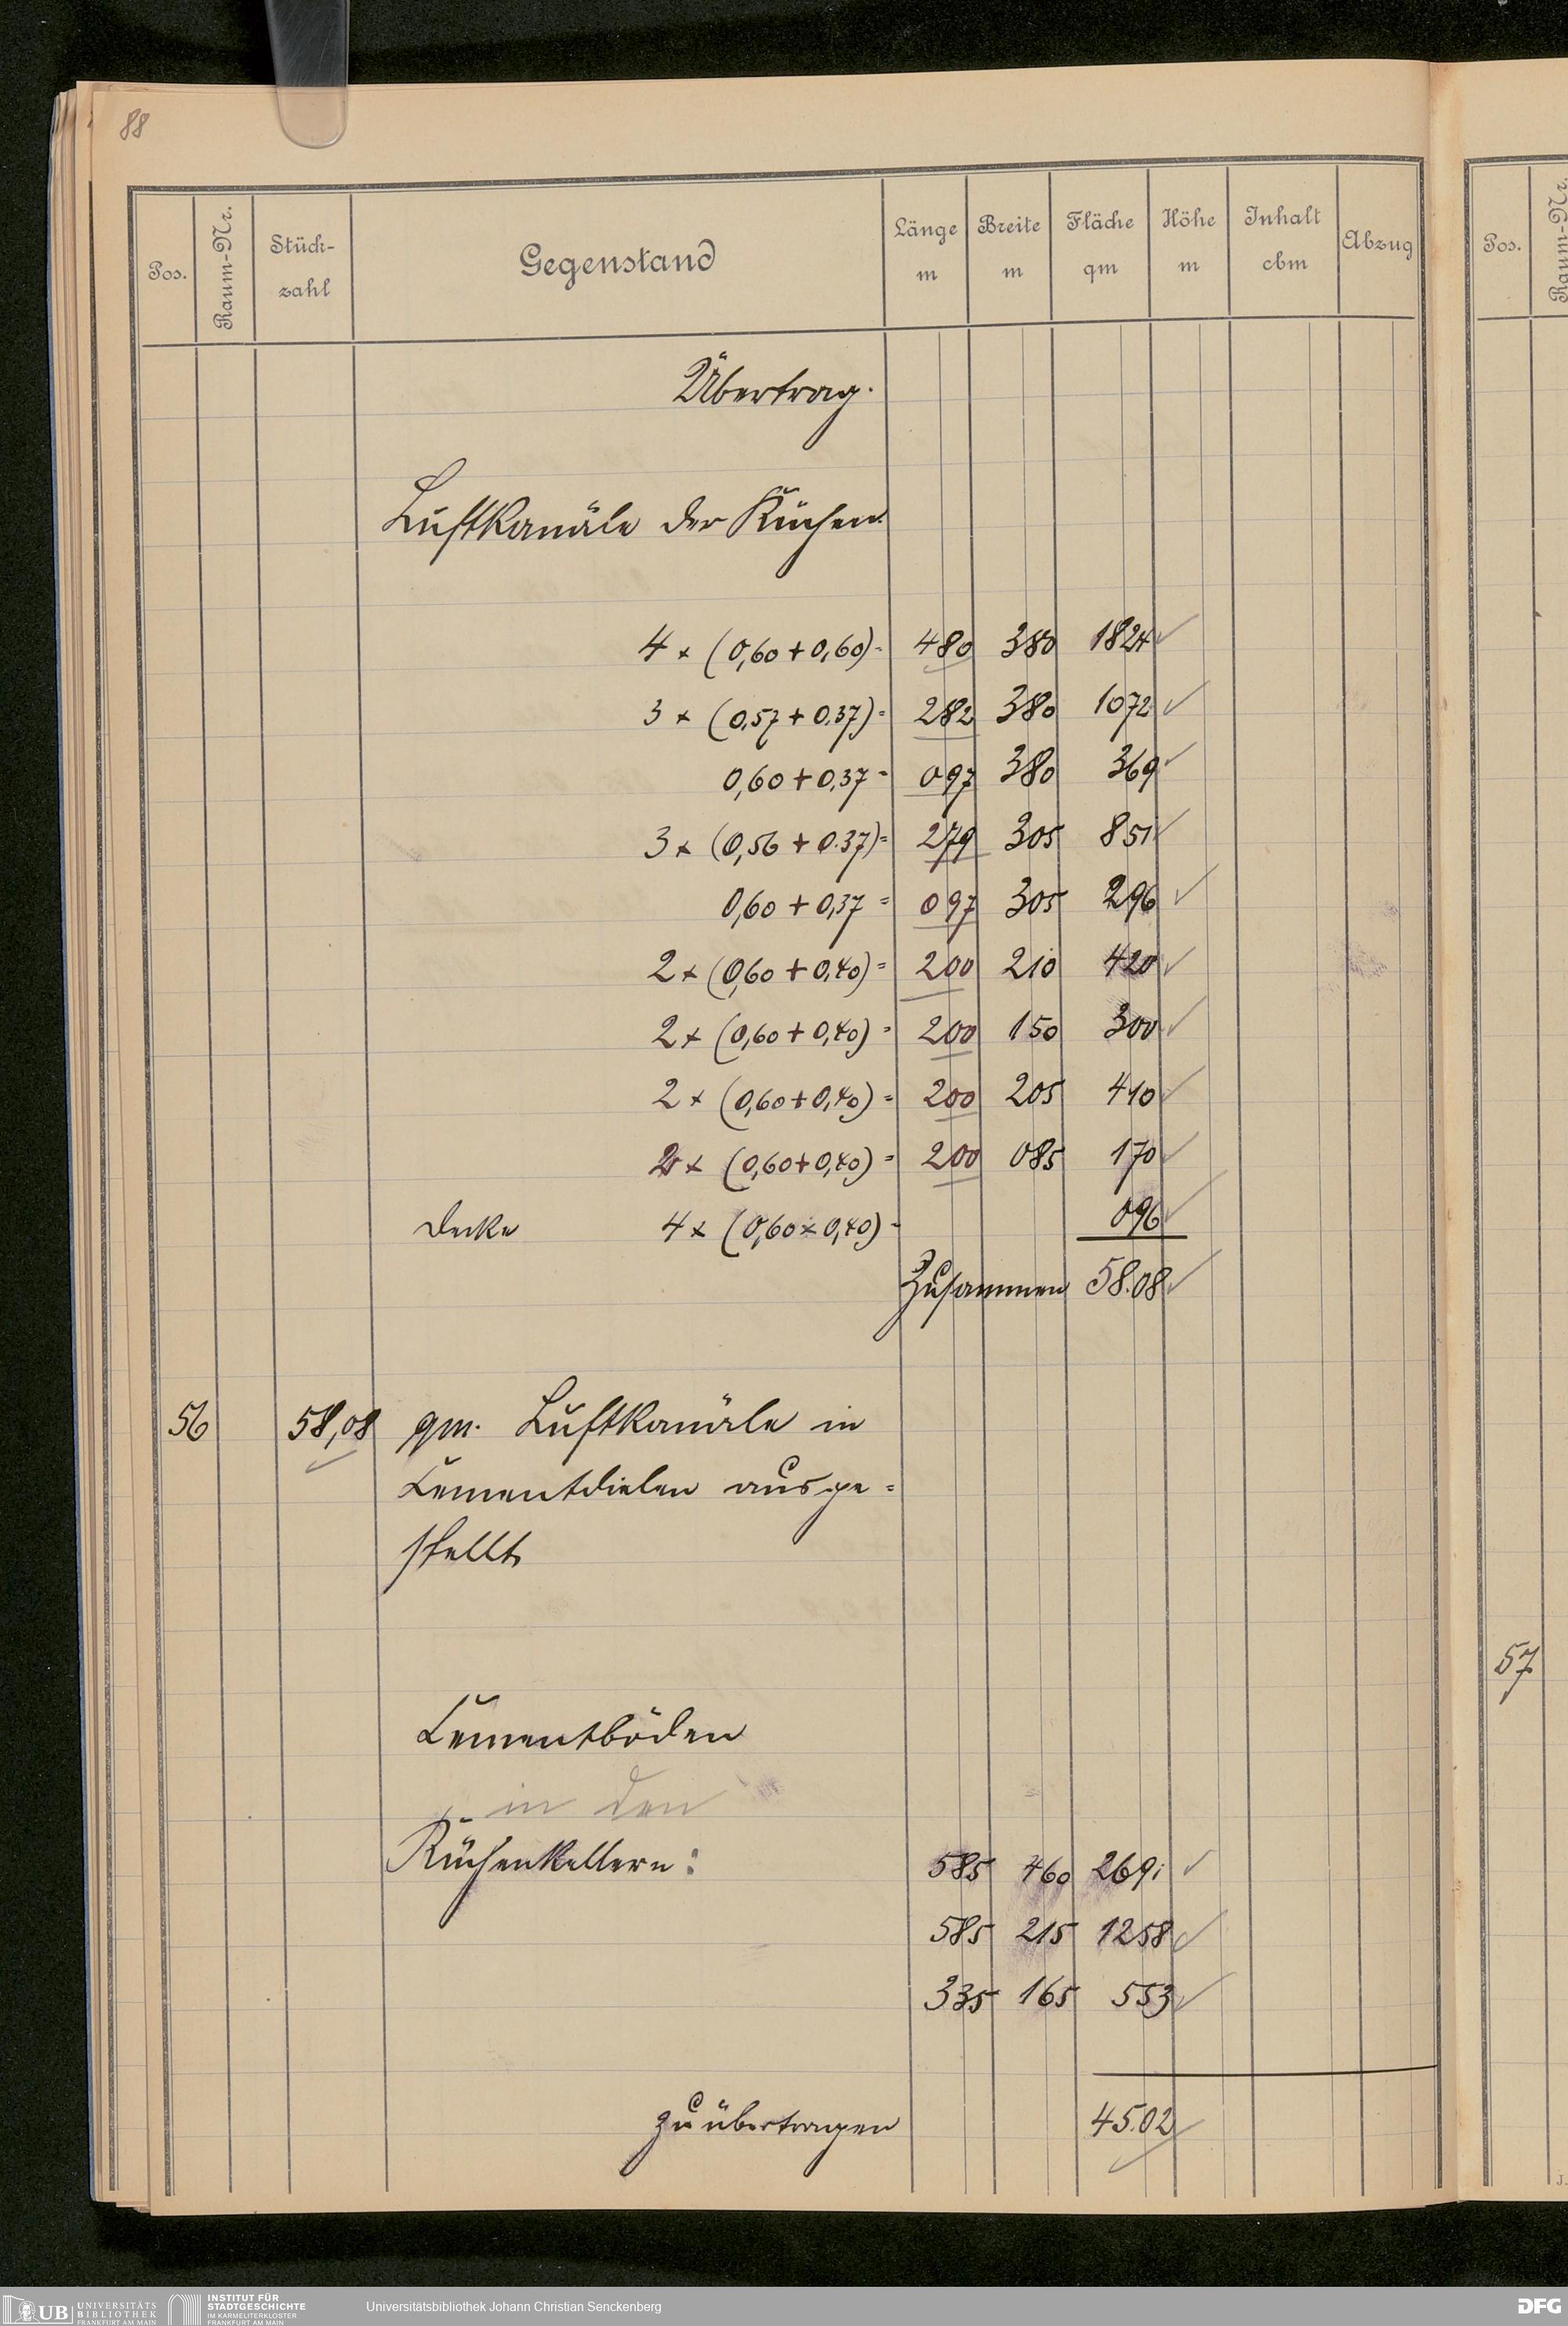 88
Pos. Raum-Nr. Stück-zahl Gegenstand Länge m Breite m Fläche qm Höhe m Inhalt cbm Abzug
Pos. Raum-Nr.
Übertrag.
Luftkanäle der Küchen.
4 x (0,60 + 0,60) = 480 380 1824 ✓
3 x (0,57 + 0,37) = 282 380 1072 ✓
0,60 + 0,37 = 097 380 369 ✓
3 x (0,56 + 0.37) = 279 305 851 ✓
0,60 + 0,37 = 097 305 296 ✓
2 x (0,60 + 0,40) = 200 210 420 ✓
2 x (0,60 + 0,40) = 200 150 300 ✓
2 x (0,60 + 0,40) = 200 205 410 ✓
2 x (0,60 + 0,40) = 200 085 170 ✓
Decke 4 x (0,60 x 0,40) = 096 ✓
Zusammen 58.08 ✓
56 58,08 qm. Luftkanäle in
Cementdielen ausge=
stellt
57
Cementböden
in den
Küchenkellern: 585 460 2691 ✓
585 215 1258 ✓
335 165 553 ✓
zu übertragen 45.02
UB UNIVERSITÄTS BIBLIOTHEK FRANKFURT AM MAIN
INSTITUT FÜR STADTGESCHICHTE IM KARMELITERKLOSTER FRANKFURT AM MAIN
Universitätsbibliothek Johann Christian Senckenberg
DFG